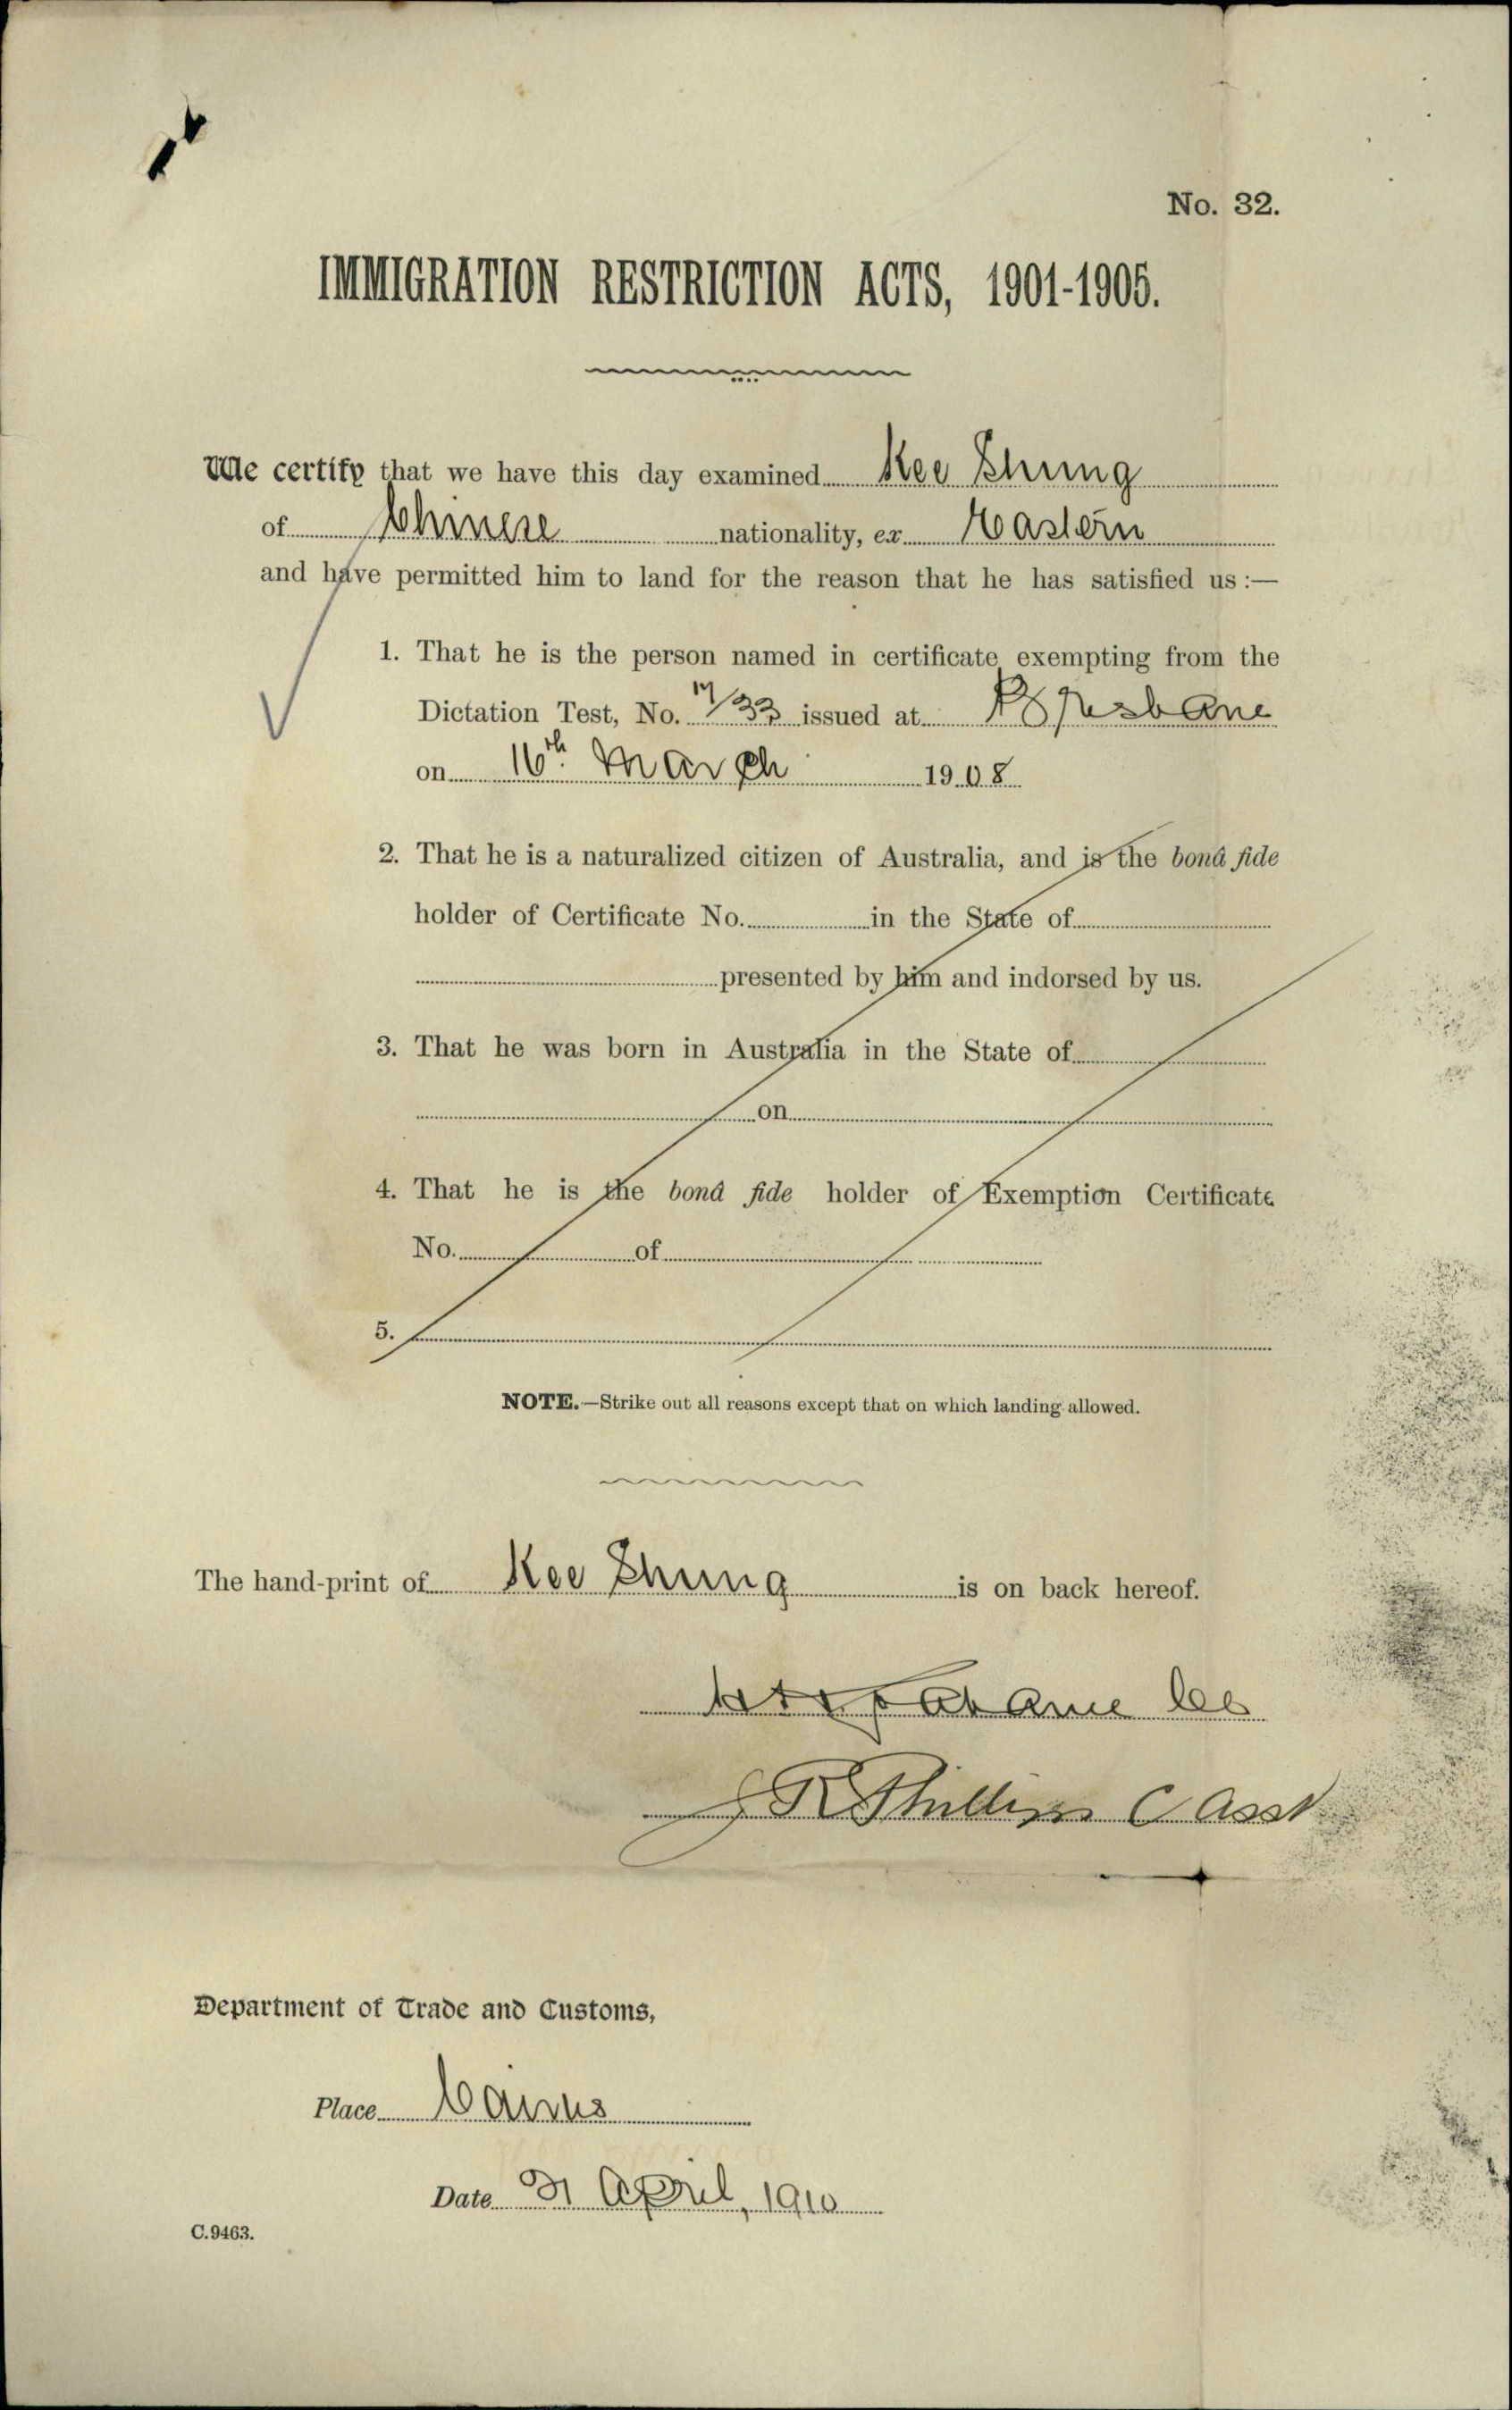 No. 32.
IMMIGRATION RESTRICTION ACTS, 1901-1905.
We certify that we have this day examined Kee Chung
of Chinese nationality, ex Eastern
and have permitted him to land for the reason that he has satisfied us :—
1. That he is the person named in certificate exempting from the
Dictation Test, No. 17/33 issued at Brisbane
on 16th March 1908
2. That he is a naturalized citizen of Australia, and is the bonâ fide
holder of Certificate No. in the State of
presented by him and indorsed by us.
3. That he was born in Australia in the State of
on
4. That he is the bonâ fide holder of Exemption Certificate
No. of
5.
NOTE.—Strike out all reasons except that on which landing allowed.
The hand-print of Kee Chung is on back hereof.
J R Phillips C Asst
Department of Trade and Customs,
Place Cairns
Date 21 April, 1910
C.9463.